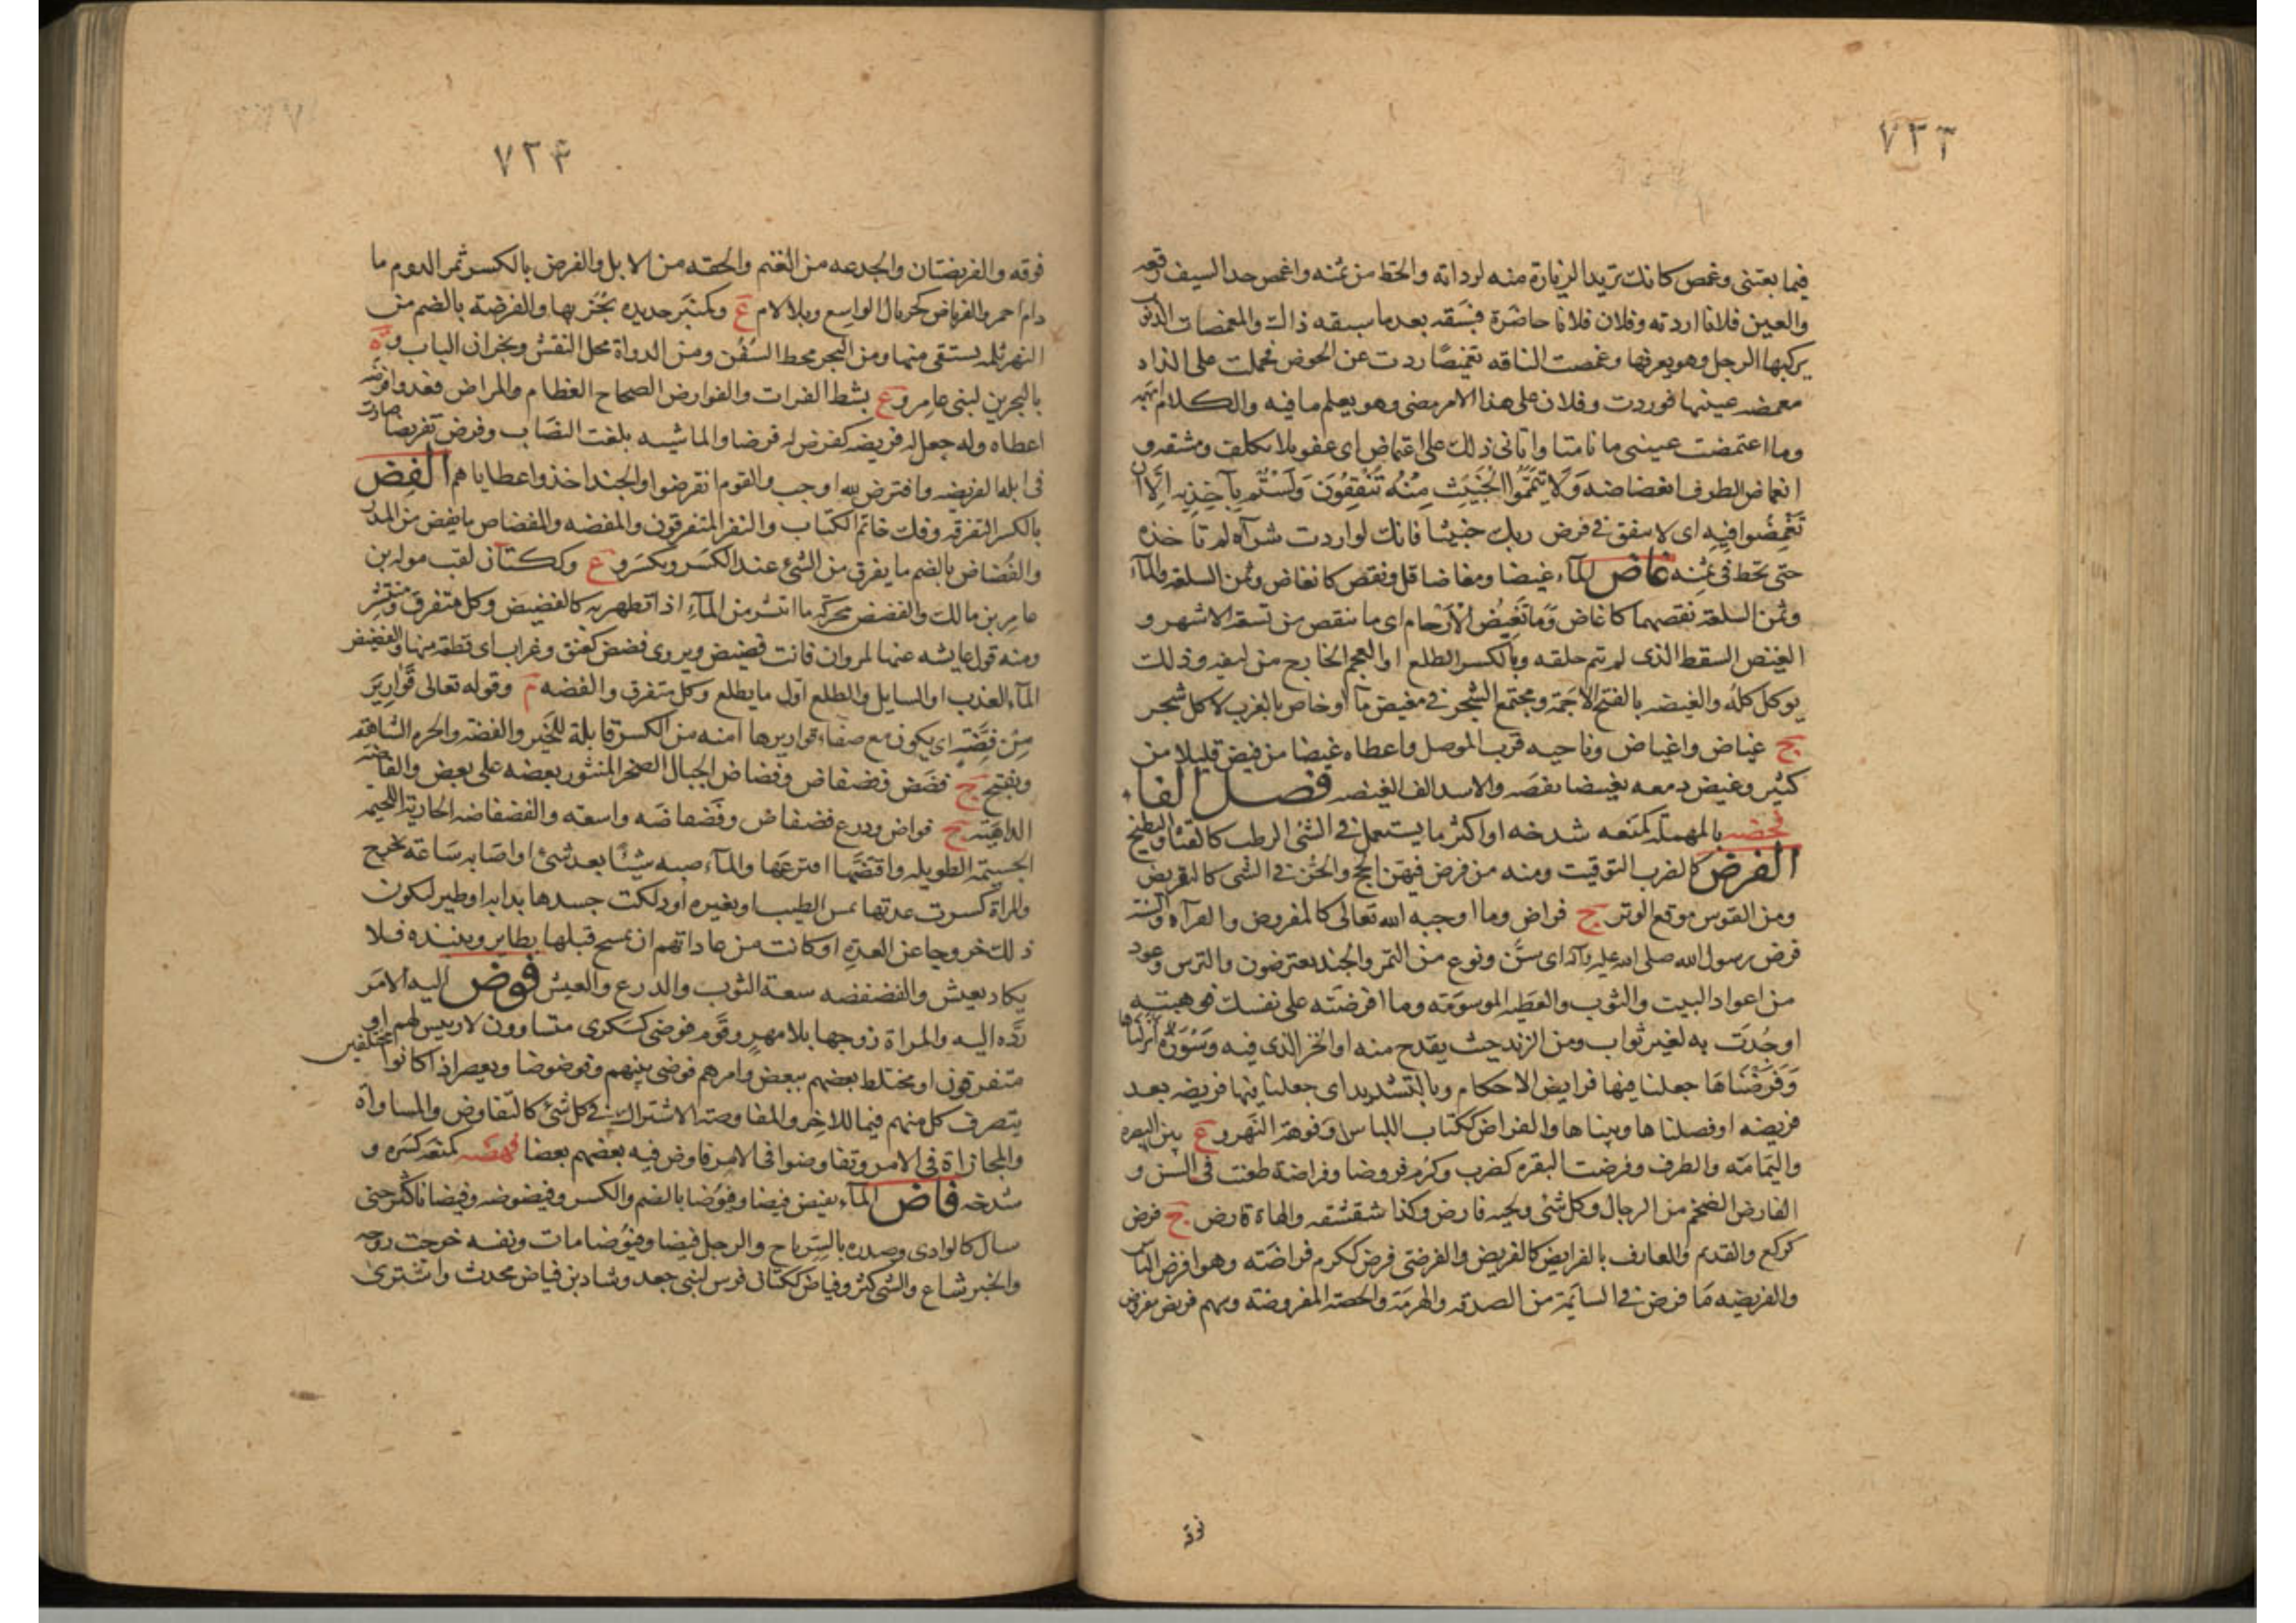 ٧٣٣
فيما بعتنى وغمض كانك تريد الزيادة منه لرداته والحط من ثمنه واغمض حد السيف رققه
والعين فلانا ازدرته وفلان فلانا حاضره فسبقه بعدما سبقه ذالك والمغمضات الذنوب
يركبها الرجل وهو يعرفها وغمضت الناقه تغميضا ردت عن الحوض فحملت على الذاد
مغمضه عينيها فوردت وفلان على هذا الامر مضى وهو يعلم ما فيه والكلام ابهمه
وما اعتمضت عينى ما نامتا واتانى ذلك على اغتماض اى عفو بلا تكلف ومشقه و
انغماض الطرف انغضاضه وَلَا تَيَمَّمُوا الْخَبِيثَ مِنْهُ تُنْفِقُونَ وَلَسْتُمْ بِآخِذِيهِ إِلَّا أَنْ
تُغْمِضُوا فِيهِ اى لا تنفق فى قرض ربك خبيثا فانك لو اردت شرآه لم تاخذه
حتى تحط فى ثمنه غاض المآء غيضا ومغاضا قل ونقص كانغاض وثمن السلعه والمآء
وثمن السلعة نقصهما كاغاض وَمَا تَغِيضُ الْأَرْحَام اى ما تنقص من تسعة الاشهر و
الغيض السقط الذى لم تتم خلقه وبالكسر الطلع او العجم الخارج من ليفه وذلك
يوكل كله والغيضه بالفتح الاجمة ومجتمع الشجر فى مغيض مآ او خاص بالغرب لا كل شجر
ج غياض واغياض وناحيه قرب الموصل واعطاه غيضا من فيض قليلا من
كثير وغيض دمعه تغييضا نقصه والاسد الف الغيضه فصل الفاء
فحضه بالمهملة كمنعه شدخه او اكثر ما يستعمل فى الشئ الرطب كالقثا والبطيخ
الفرض كالضرب التوقيت ومنه من فرض فيهن الحج والحز فى الشى كالتفريض
ومن القوس موقع الوتر ج فراض وما اوجبه الله تعالى كالمفروض والقرآه والسنة
فرض رسول الله صلى الله عليه وآله اى سن ونوع من التمر والجند يفترضون والترس وعود
من اعواد البيت والثوب والعطيه الموسومه وما افرضته على نفسك فوهبته
او جُدت به لغير ثواب ومن الزند حيث يقدح منه او الحز الذى فيه وَسُورَةٌ أَنْزَلْنَاهَا
وَفَرَضْنَاهَا جعلنا فيها فرايض الاحكام وبالتشديد اى جعلنا فيها فريضه بعد
فريضه او فصلناها وبيناها والفراض ككتاب اللباس وفوهة النهر و ع بين البصره
واليمامه والطرف وفرضت البقره كضرب وكرم فروضا وفراضة طعنت فى السن و
الفارض الضخم من الرجال وكل شى ولحيه فارض وكذا شقشقه ولهاة فارض ج فرض
كركع والقديم والعارف بالفرايض كالفريض والفرضى فرض ككرم فراضه وهو افرض الناس
والفريضه ما فرض فى السائمة من الصدقه والهرمة والحصة المفروضة وسهم فريض مفروض
فوقه
٧٣۴
فوقه والفريضتان والجدعه من الغنم والحقه من الابل والفرض بالكسر ثمر الدوم ما
دام احمر والفرياض كجريال الواسع وبلا لام ع وكمنبر حديده يحز بها والفرضة بالضم من
النهر ثلمه يستقى منها ومن البحر محط السفن ومن الدواة محل النقش ونجران الباب و ة
بالبحرين لبنى عامر و ع بشط الفرات والفوارض الصحاح العظام والمراض ضد وافرضه
اعطاه وله جعل له فريضه كفرض له فرضا والماشيه بلغت النصاب وفرض تفريضا صارت
فى ابله الفريضه وافترض الله اوجب والقوم انقرضوا والجند اخذوا عطاياهم الفض
بالكسر التفرقه وفك خاتم الكتاب والنفر المتفرقون والمفضه والمفضاض ما يفض من المدر
والفُضاض بالضم ما يفرق من الشئ عند الكسر ويكسر و ع وككتان لقب مواله بن
عامر بن مالك والفضض محركة ما انتشر من المآء اذا تطهر به كالفضيض وكل متفرق ومنتشر
ومنه قول عايشه عنها لمروان فانت فضيض ويروى فضض كعنق وغراب اى قطعة منها والفضيض
المآء العذب او السايل والطلع اول ما يطلع وكل متفرق والفضه م وقوله تعالى قَوَارِيرَ
مِنْ فِضَّةٍ اى يكون مع صفاء قواريرها امنه من الكسر قابلة للجبر والفضة والحره الشاهقه
وتفتح ج فضض وفضاض وفضاض الجبال الصخر المنثور بعضه على بعض والفاضه
الداهية ج فواض ودرع فضفاض وفضفاضه واسعة والفضفاضه الجارية اللحيمه
الجسيمة الطويله واقتضها افترعها والمآء صبه شيئا بعد شئ او اصابه ساعة يخرج
والمراة كسرت عدتها بمس الطيب او بغيره او دلكت جسدها بدابه او طير ليكون
ذلك خروجا عن العده او كانت من عاداتهم ان تمسح قبلها بطاير وينبذه فلا
يكاد يعيش والفضفضه سعة الثوب والدرع والعيش فوض اليه الامر
رده اليه والمراة زوجها بلا مهر وقوم فوضى كسكرى متساوون لا رييس لهم او
متفرقون او مختلط بعضهم ببعض وامرهم فوضى بينهم وفوضوضا ويقصر اذا كانوا مختلفين
يتصرف كل منهم فيما للاخر والمفاوضة الاشتراك فى كل شئ كالتفاوض والمساواة
والمجازاة فى الامر وتفاوضوا فى الامر فاوض فيه بعضهم بعضا فهضه كمنعه كسره و
شدخه فاض المآء يفيض فيضا وفيوضا بالضم والكسر وفيضوضه وفيضانا كثر حتى
سال كالوادى وصدره بالسر باح والرجل فيضا وفيوضا مات ونفسه خرجت روحه
والخبر شاع والشى كثر وفياض ككتان فرس لبنى جعد وشاد بن فياض محدث واشترى